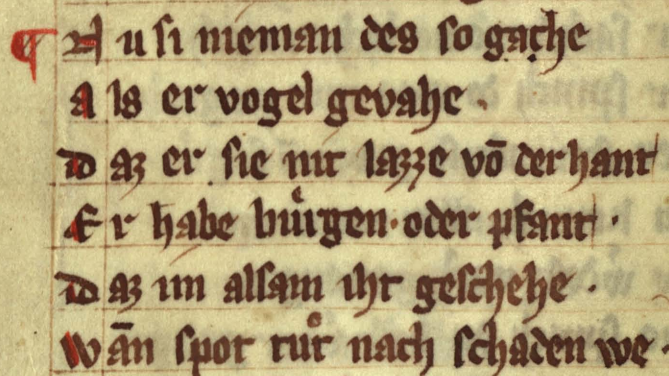 ¶ N u si nieman des so gache
a ls er vogel gevahe .
d az er sie nit lazze vō der hant
E r habe búrgen · oder pfant ·
d az im alsam iht geschehe .
w ān spot tůt nach schaden we .